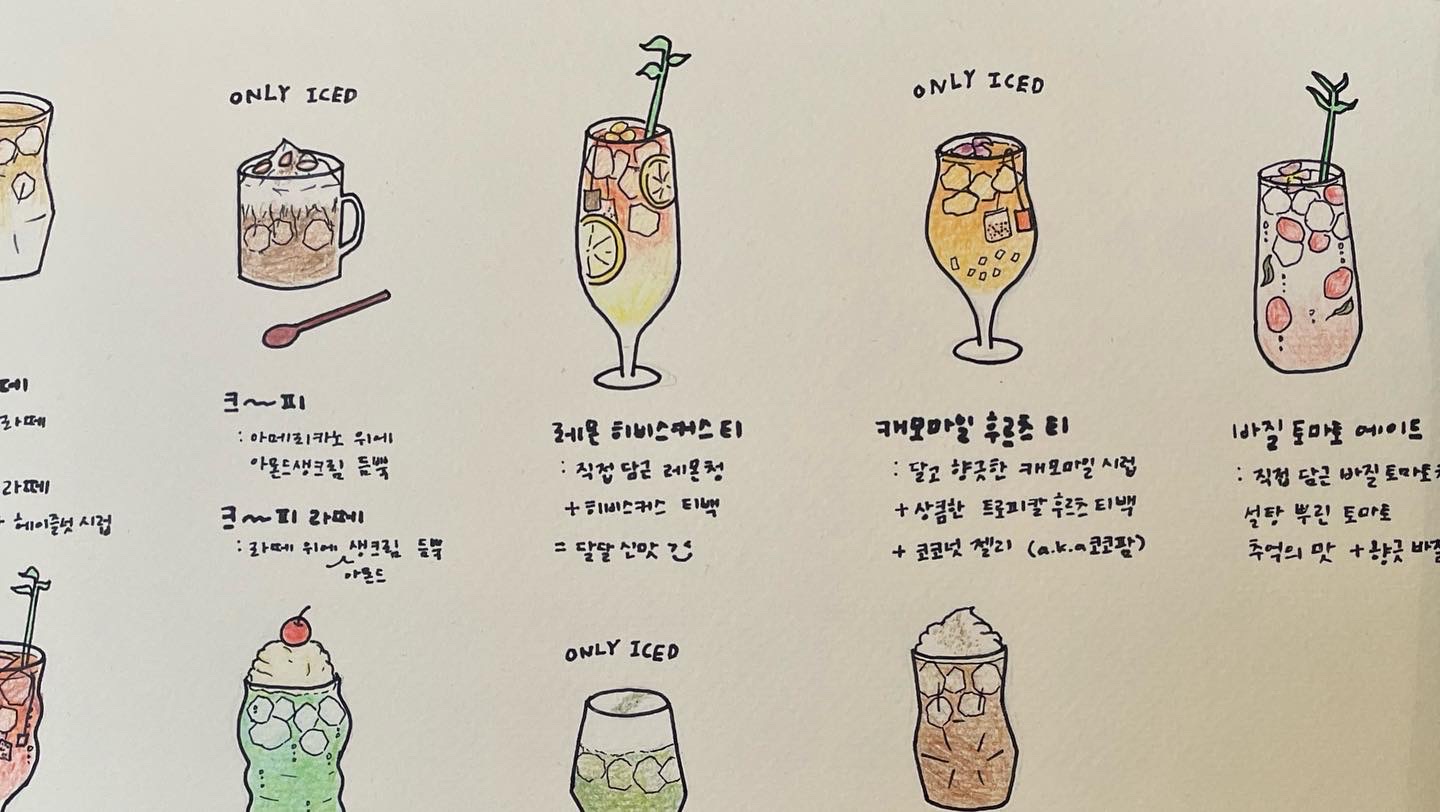 떼
라떼
라떼
+ 헤이즐넛 시럽
ONLY ICED
크~피
: 아메리카노 위에
아몬드생크림 듬뿍
크~피 라떼
: 라떼 위에 생크림 듬뿍
아몬드
레몬 히비스커스 티
: 직접 담근 레몬청
+ 히비스커스 티백
= 달달 신맛
ONLY ICED
캐모마일 후르츠 티
: 달고 향긋한 캐모마일 시럽
+ 상큼한 트로피칼 후르츠 티백
+ 코코넛 젤리 (a.k.a 코코팜)
바질 토마토 에이드
: 직접 담근 바질 토마토
설탕 뿌린 토마토
추억의 맛 + 향긋 바질
ONLY ICED